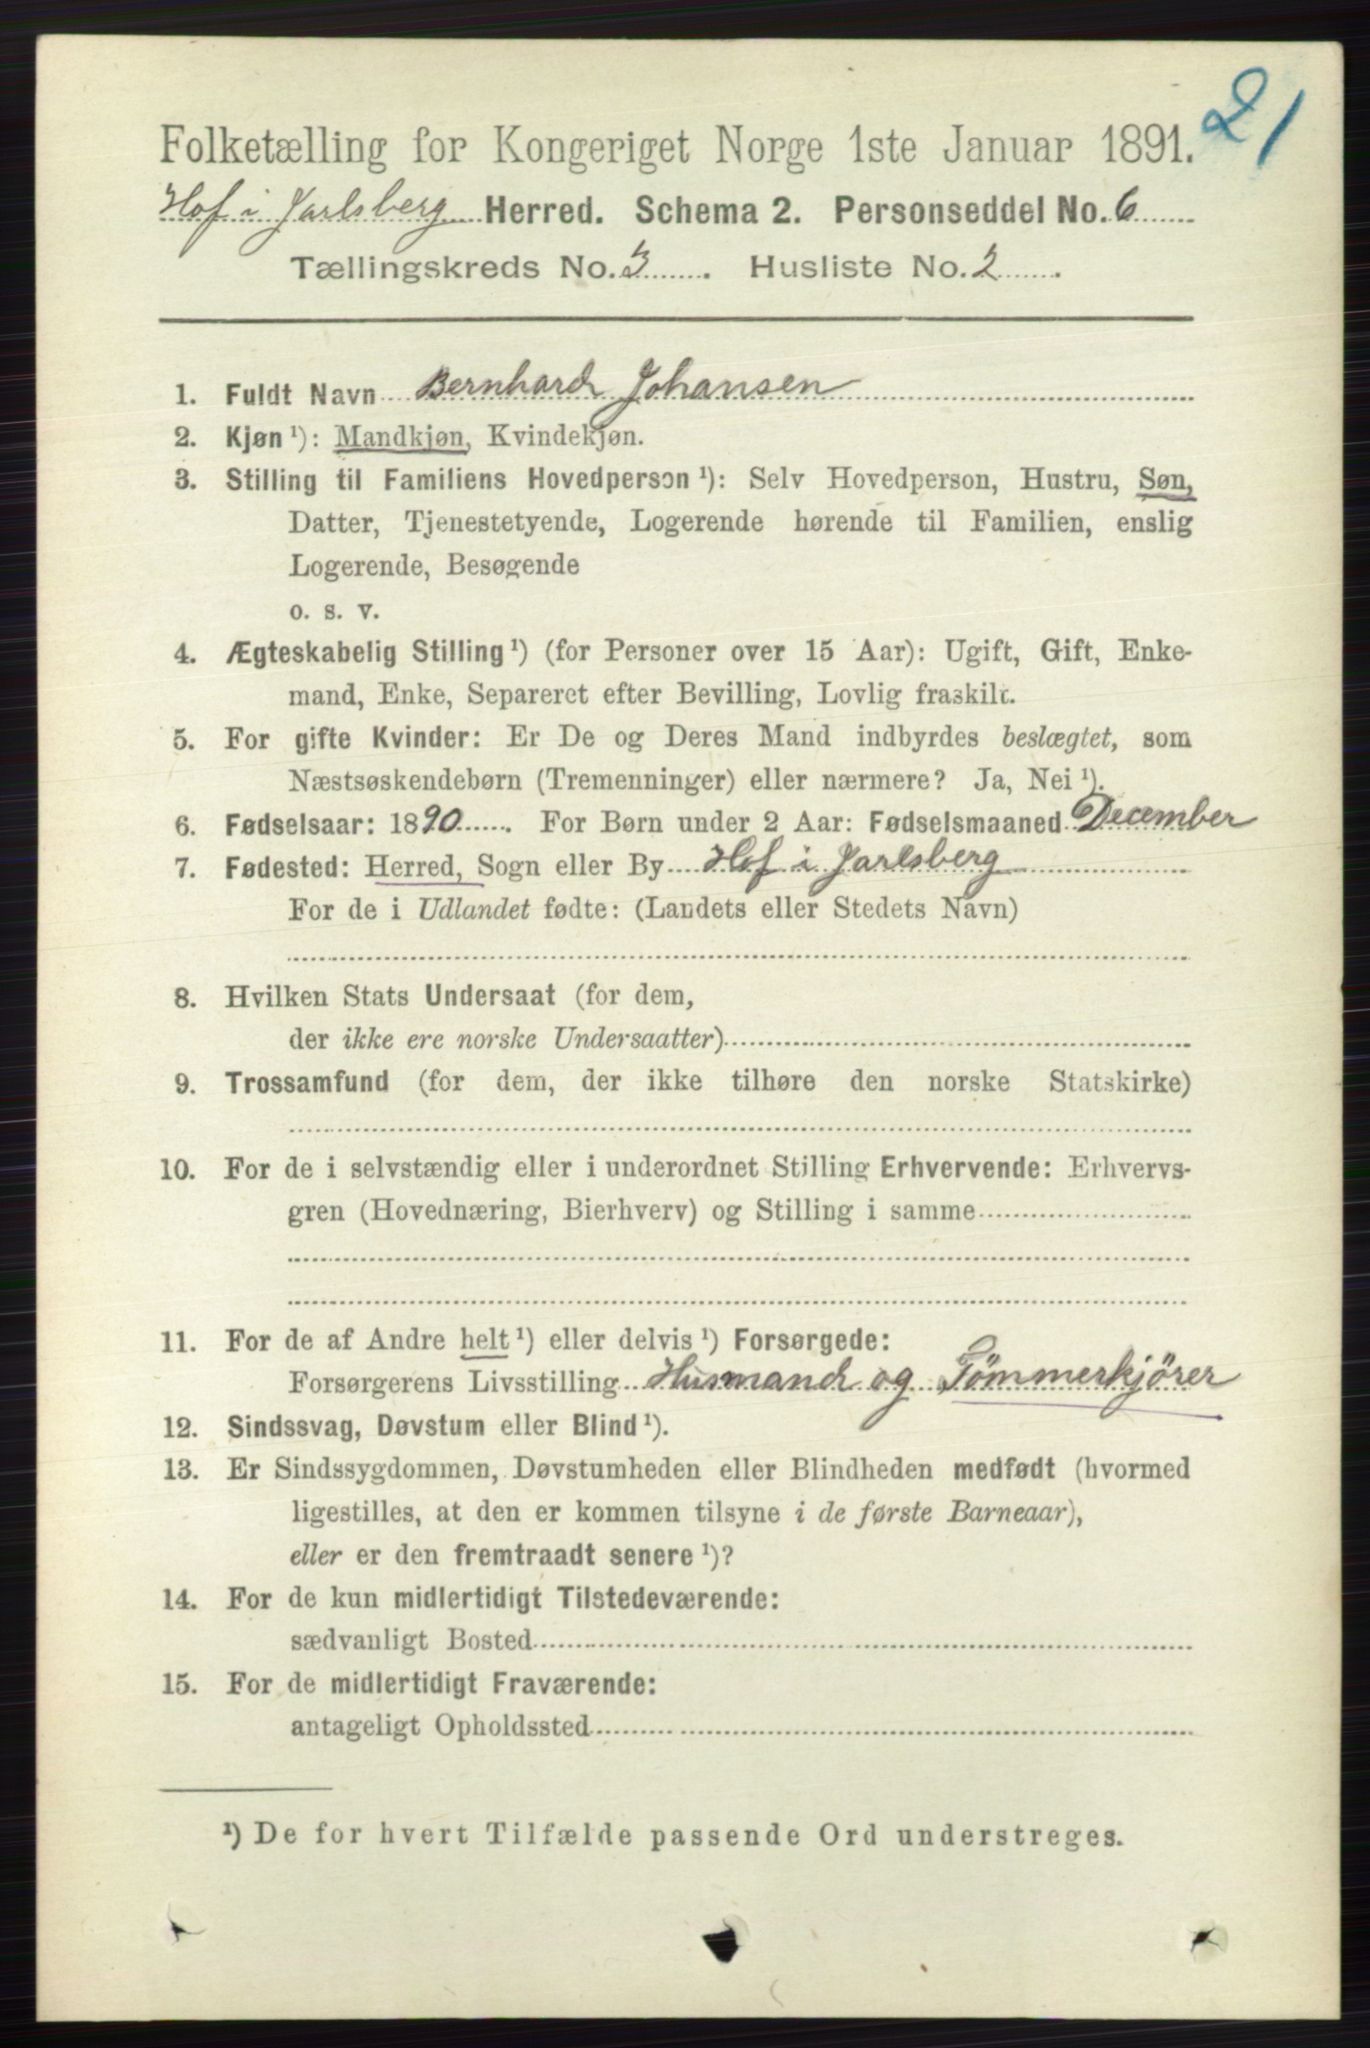 21
Folketælling for Kongeriget Norge 1ste Januar 1891.
Hof i Jarlsberg Herred. Schema 2. Personseddel No. 6
Tællingskreds No. 3. Husliste No. 2.
1. Fuldt Navn Bernhard Johansen
2. Kjøn ¹): Mandkjøn, Kvindekjøn.
3. Stilling til Familiens Hovedperson ¹): Selv Hovedperson, Hustru, Søn,
Datter, Tjenestetyende, Logerende hørende til Familien, enslig
Logerende, Besøgende
o. s. v.
4. Ægteskabelig Stilling ¹) (for Personer over 15 Aar): Ugift, Gift, Enke-
mand, Enke, Separeret efter Bevilling, Lovlig fraskilt.
5. For gifte Kvinder: Er De og Deres Mand indbyrdes beslægtet, som
Næstsøskendebørn (Tremenninger) eller nærmere? Ja, Nei ¹).
6. Fødselsaar: 1890. For Børn under 2 Aar: Fødselsmaaned December
7. Fødested: Herred, Sogn eller By Hof i Jarlsberg
For de i Udlandet fødte: (Landets eller Stedets Navn)
8. Hvilken Stats Undersaat (for dem,
der ikke ere norske Undersaatter)
9. Trossamfund (for dem, der ikke tilhøre den norske Statskirke)
10. For de i selvstændig eller i underordnet Stilling Erhvervende: Erhvervs-
gren (Hovednæring, Bierhverv) og Stilling i samme
11. For de af Andre helt ¹) eller delvis ¹) Forsørgede:
Forsørgerens Livsstilling Husmand og Tömmerkjörer
12. Sindssvag, Døvstum eller Blind ¹).
13. Er Sindssygdommen, Døvstumheden eller Blindheden medfødt (hvormed
ligestilles, at den er kommen tilsyne i de første Barneaar),
eller er den fremtraadt senere ¹)?
14. For de kun midlertidigt Tilstedeværende:
sædvanligt Bosted
15. For de midlertidigt Fraværende:
antageligt Opholdssted
¹) De for hvert Tilfælde passende Ord understreges.